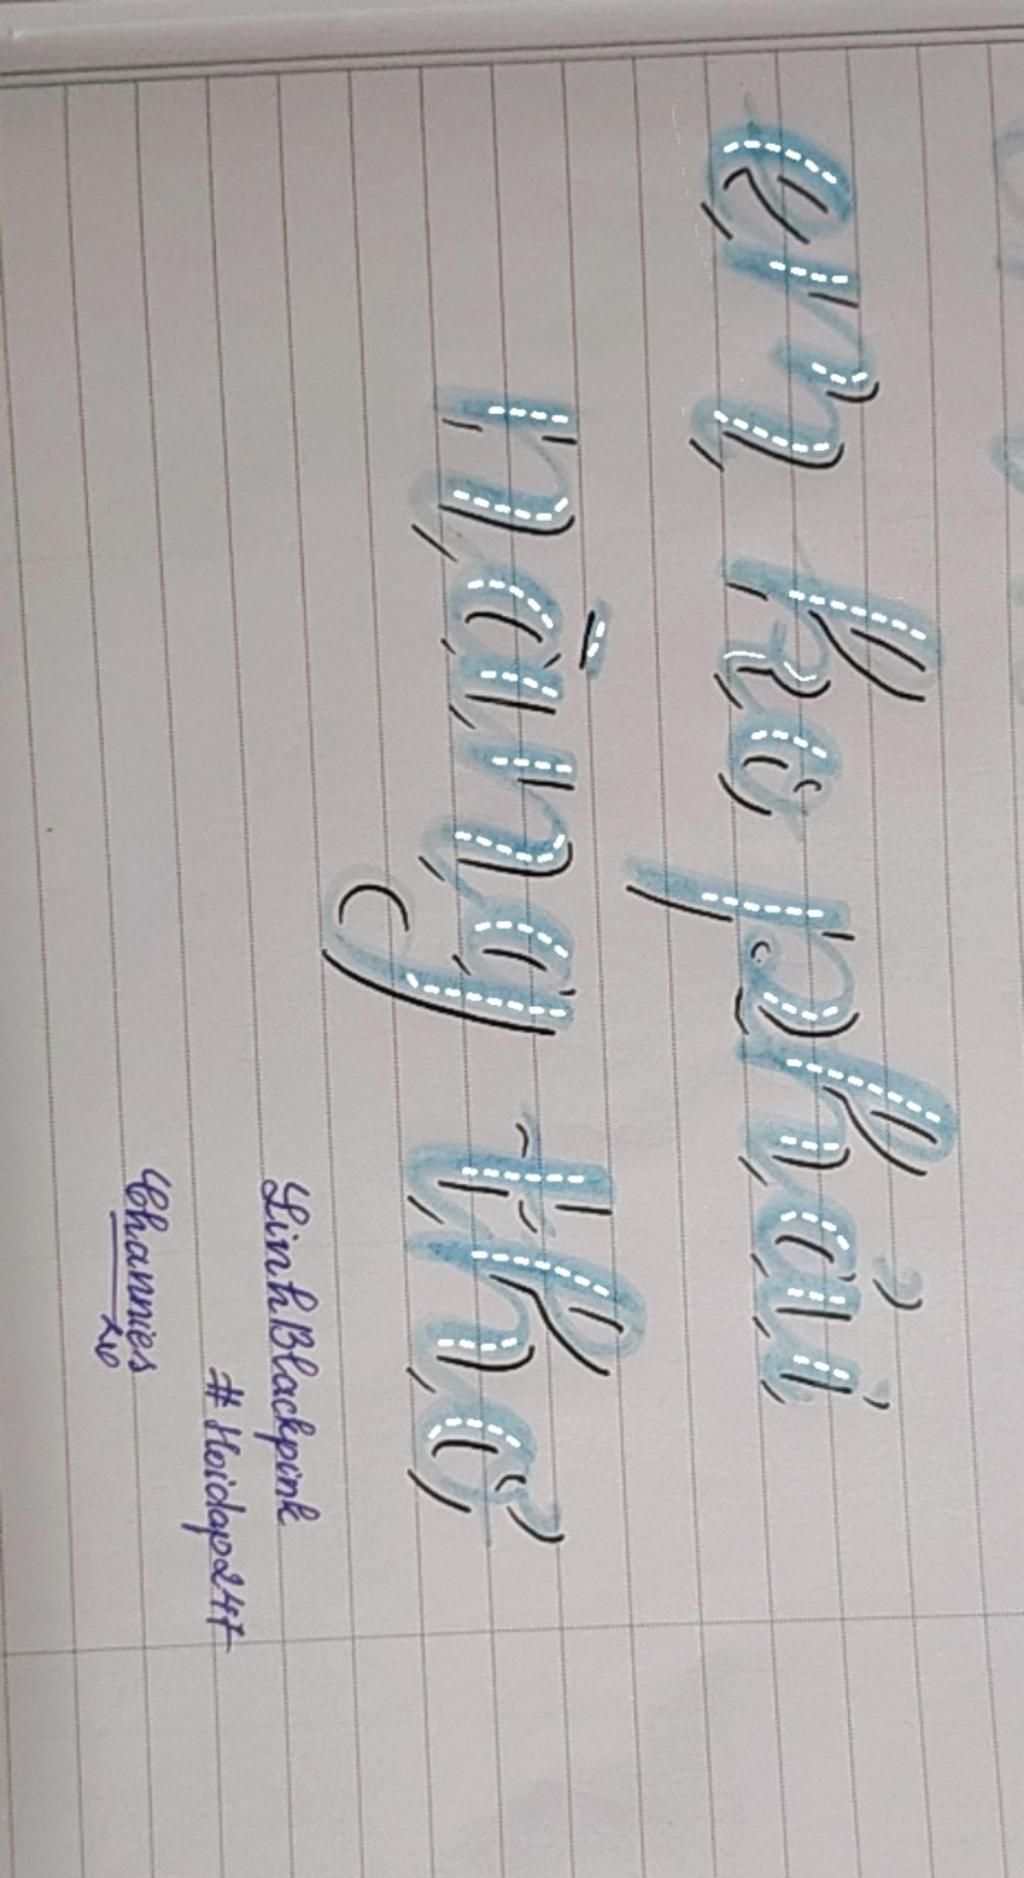 em ko phải
nàng thơ
LinhBlackpink
#Hoidap247
Channies